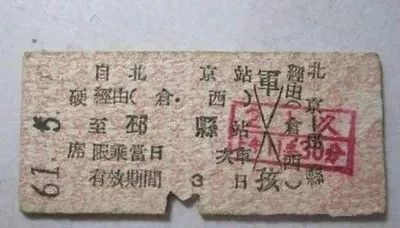 61. 5.
硬席
自北京站
經由(倉·西)
至邳縣站
限乘當日 次車
有效期間 3 日
軍孩
經由(倉西)
北京—邳縣